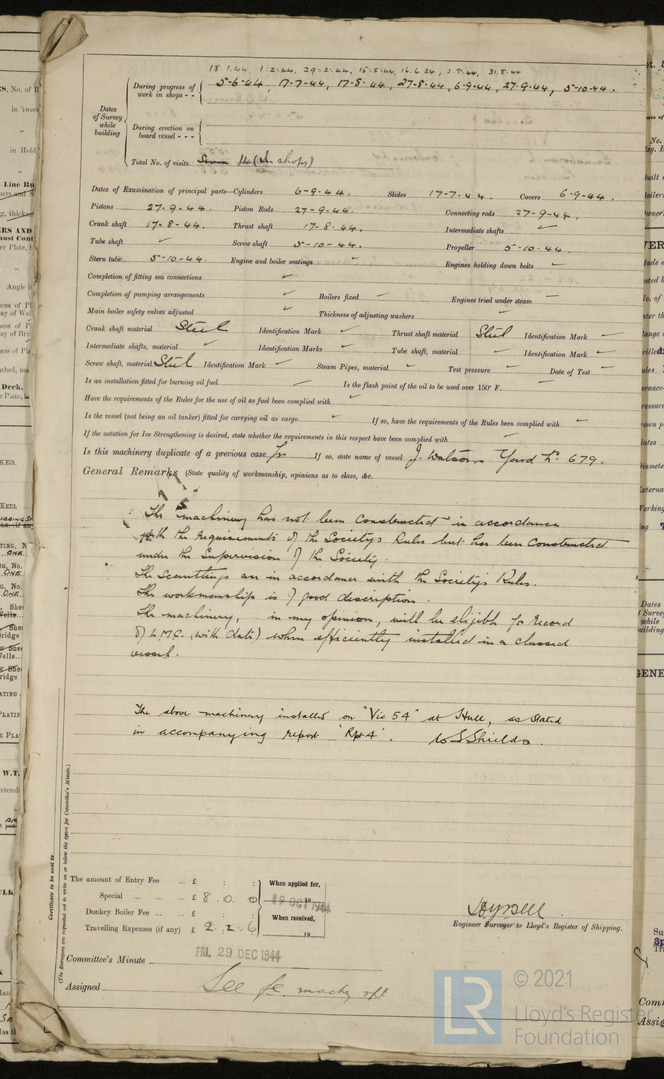 18.1.44, 1-2-44, 29-2-44, 15-5-44, 16.6.24, 2.8.44, 31.8.44
During progress of work in shops - - 5-6-44, 17-7-44, 17-8-44, 27-8-44, 6-9-44, 27-9-44, 5-10-44.
Dates of Survey while building
During erection on board vessel - - -
Total No. of visits Seven 14 (In shops)
Dates of Examination of principal parts—Cylinders 6-9-44. Slides 17-7-44. Covers 6-9-44.
Pistons 27-9-44. Piston Rods 27-9-44. Connecting rods 27-9-44.
Crank shaft 17-8-44. Thrust shaft 17-8-44. Intermediate shafts
Tube shaft Screw shaft 5-10-44. Propeller 5-10-44.
Stern tube 5-10-44. Engine and boiler seatings Engines holding down bolts
Completion of fitting sea connections
Completion of pumping arrangements Boilers fixed Engines tried under steam
Main boiler safety valves adjusted Thickness of adjusting washers
Crank shaft material Steel Identification Mark Thrust shaft material Steel Identification Mark
Intermediate shafts, material Identification Marks Tube shaft, material Identification Mark
Screw shaft, material Steel Identification Mark Steam Pipes, material Test pressure Date of Test
Is an installation fitted for burning oil fuel Is the flash point of the oil to be used over 150° F.
Have the requirements of the Rules for the use of oil as fuel been complied with
Is the vessel (not being an oil tanker) fitted for carrying oil as cargo If so, have the requirements of the Rules been complied with
If the notation for Ice Strengthening is desired, state whether the requirements in this respect have been complied with
Is this machinery duplicate of a previous case If so, state name of vessel J. Watson Yard No. 679.
General Remarks (State quality of workmanship, opinions as to class, &c.
The machinery has not been constructed in accordance
with the requirements of the Society's Rules but has been constructed
under the Supervision of the Society
The Scantlings are in accordance with the Society's Rules.
The workmanship is of good description.
The machinery, in my opinion, will be eligible for record
of L.M.C. (with date) when efficiently installed in a classed
vessel.
The above machinery installed on "Vic 54" at Hull, as stated
in accompanying report 'Rpt 4'. W S Shields.
Certificate to be sent to
(The Surveyors are requested not to write on or below the space for Committee's Minute.)
The amount of Entry Fee ... £ : : When applied for,
Special ... ... £ 8 . 0 . 0 19 OCT 1944
Donkey Boiler Fee ... £ : : When received,
Travelling Expenses (if any) £ 2 . 2 . 6 19
Engineer Surveyor to Lloyd's Register of Shipping.
Committee's Minute FRI. 29 DEC 1944
Assigned See F.E. machy rpt
LR
© 2021
Lloyd's Register
Foundation